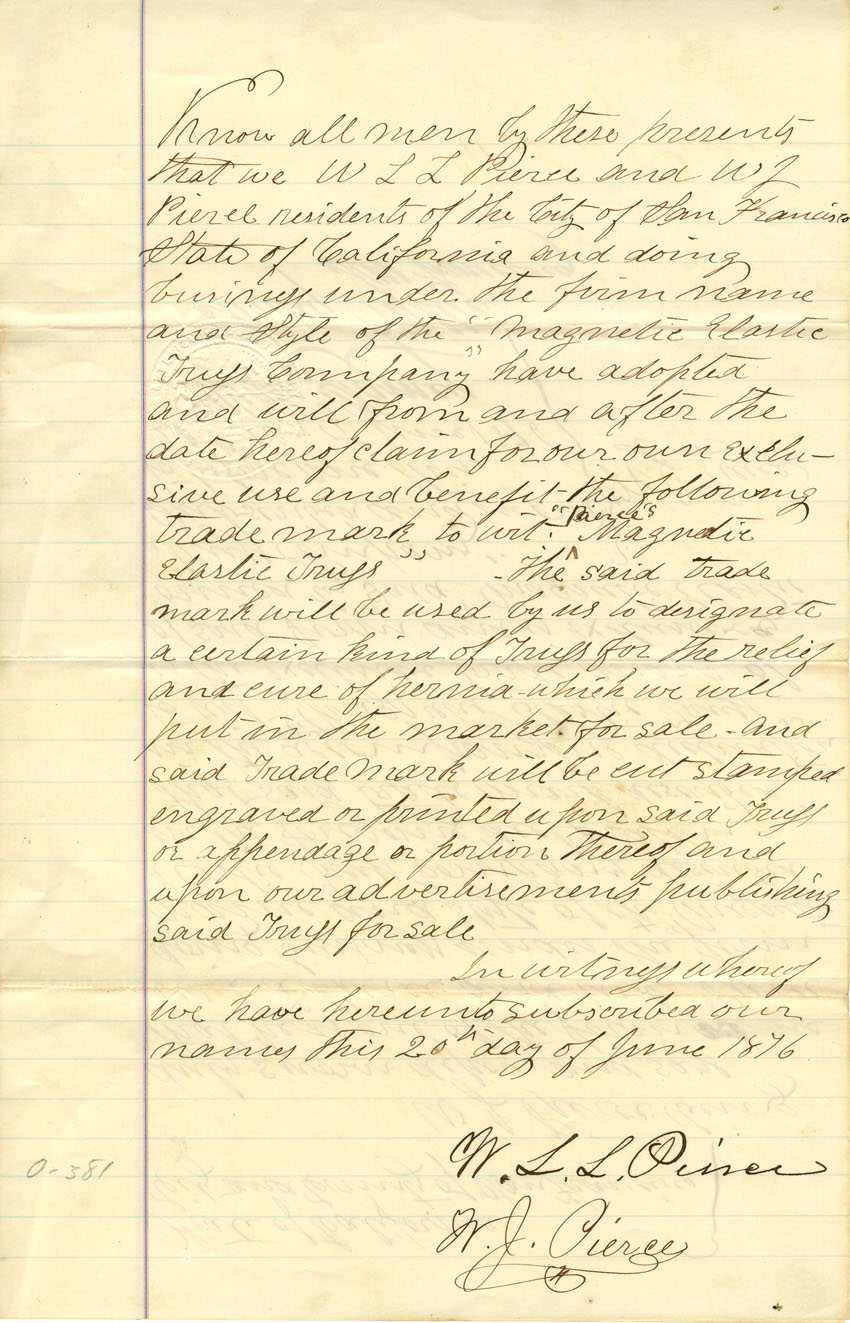 Know all men by these presents
that we W L L Pierce and W J
Pierce residents of the City of San Francisco
State of California and doing
business under the firm name
and Style of the "Magnetic Elastic
Truss Company" have adopted
and will from and after the
date hereof claim for our own exclu-
sive use and benefit - the following
trade mark to wit: "Pierce's Magnetic
Elastic Truss" - The said trade
mark will be used by us to designate
a certain kind of Truss for the relief
and cure of hernia - which we will
put in the market for sale - and
said Trade Mark will be cut stamped
engraved or printed upon said Truss
or appendage or portion thereof and
upon our advertisements publishing
said Truss for sale
In witness whereof
we have hereunto subscribed our
names this 20th day of June 1876
W. L. L. Pierce
W. J. Pierce
0-381